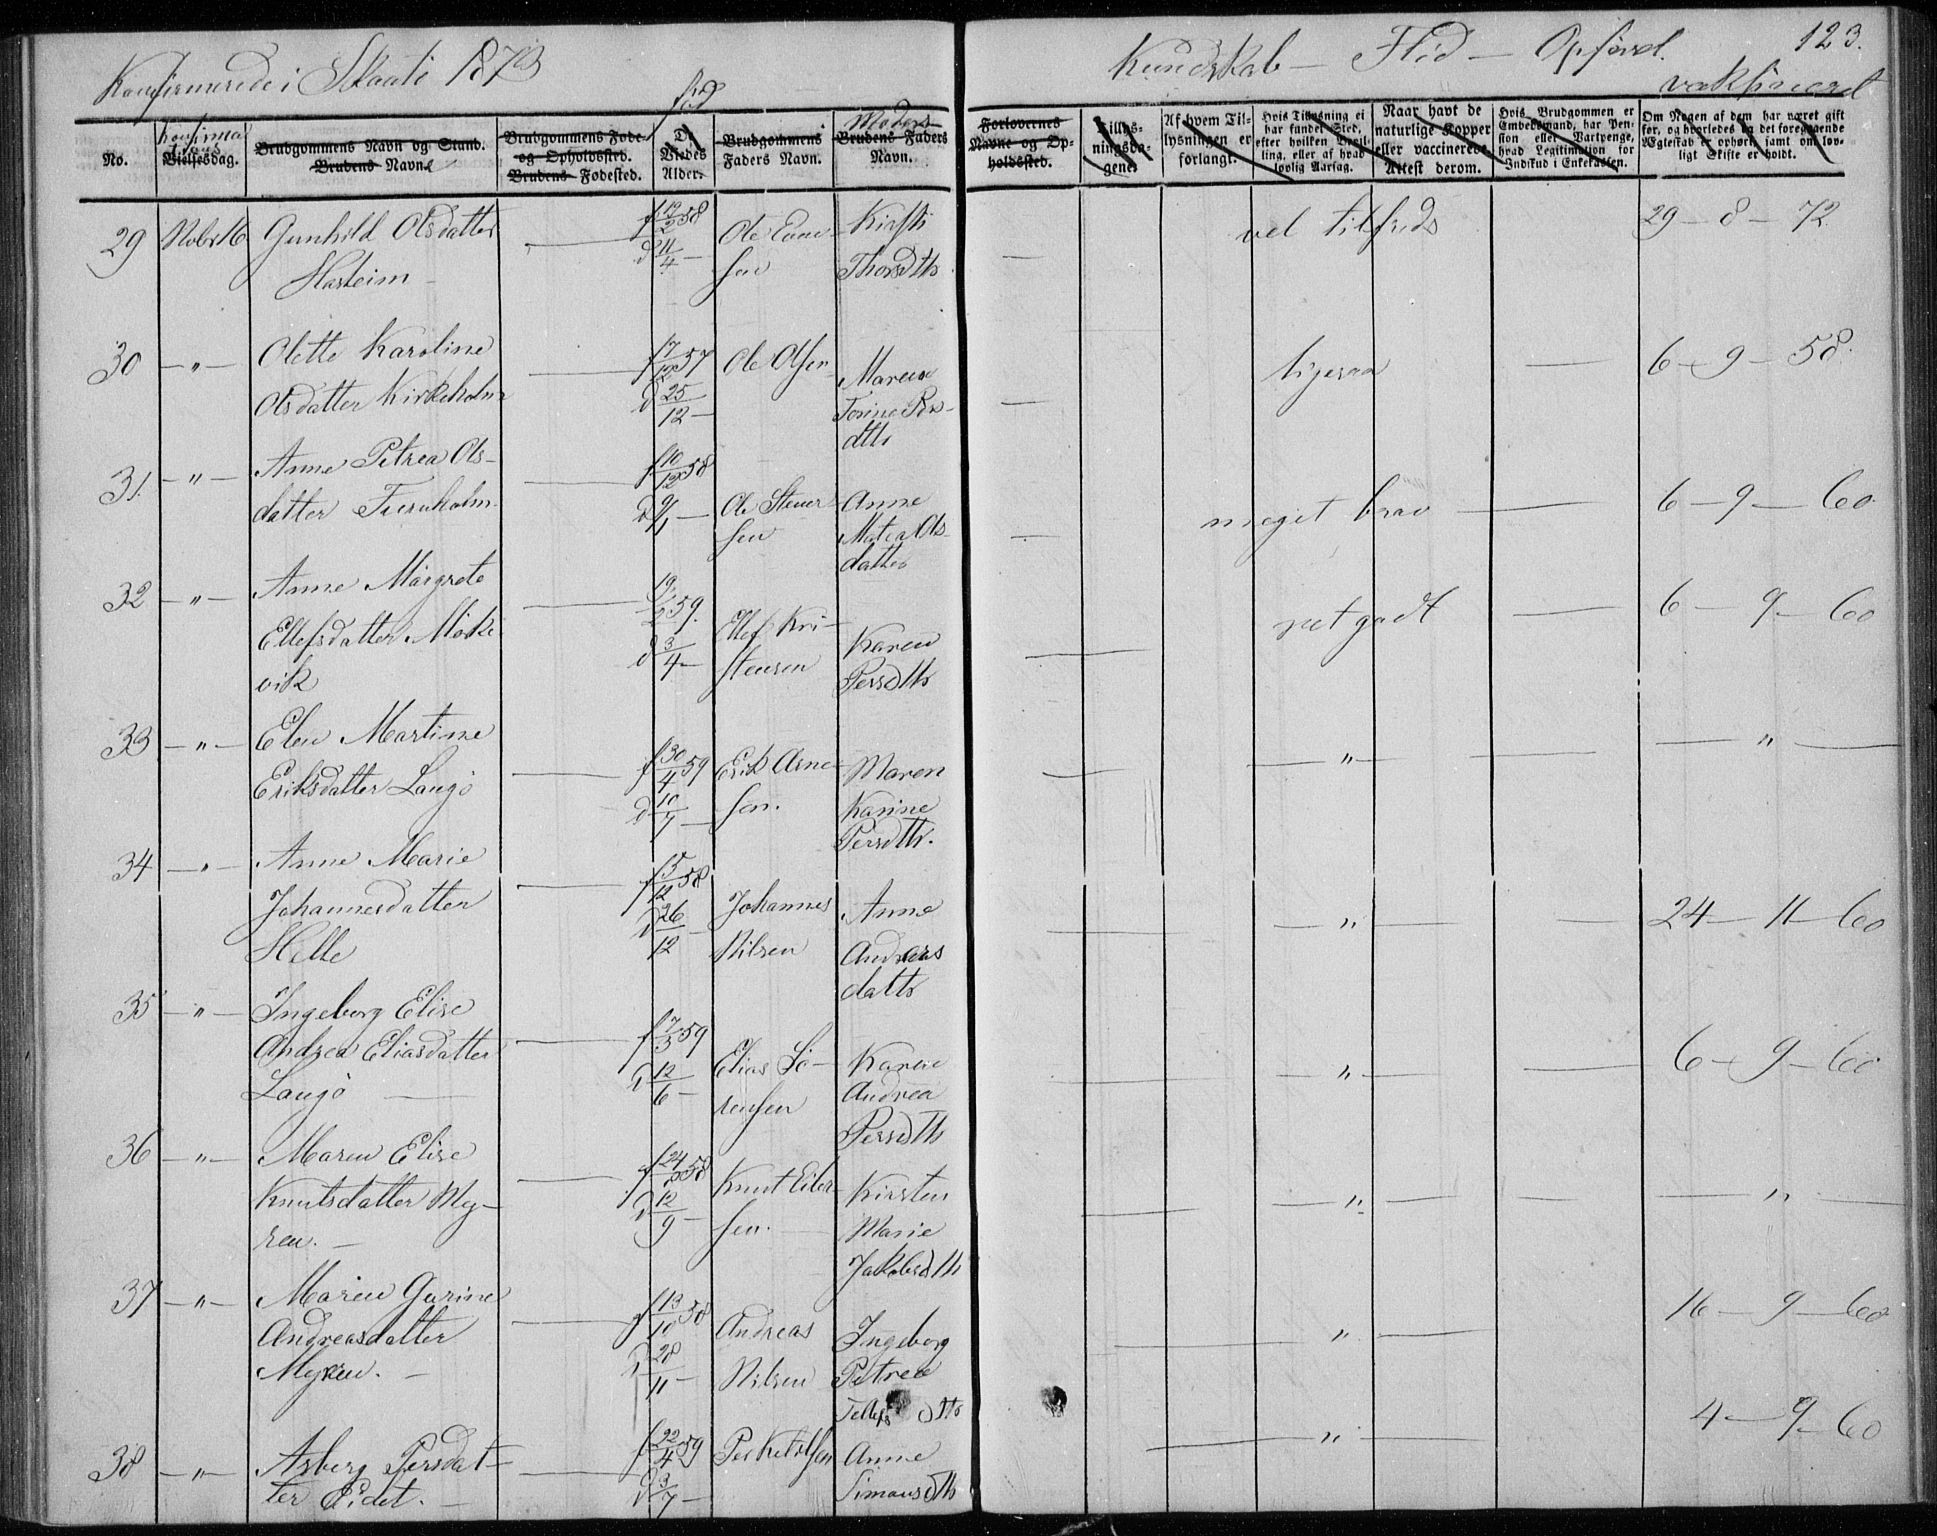 Konfirmerede i Skaatö 1873
Kundskab — Flid — Opförsel.
123.
vaksineret
No.
Konfirmations
Vielsesdag.
Brudgommens Navn og Stand.
Brudens Navn
Brudgommens Føde- og Opholdssted.
Brudens Fødested.
fød
De Viedes Alder.
Brudgommens Faders Navn.
Moders
Brudens Faders Navn.
Forlovernes Navne og Opholdssted.
Tillysningsdagene.
Af hvem Tillysningen er forlangt.
Hvis Tillysning ei har fundet Sted, efter hvilken Bevilling, eller af hvad lovlig Aarsag.
Naar havt de naturlige Kopper eller vaccinerede. Attest derom.
Hvis Brudgommen er Embedsmand, har Pension eller Vartpenge, hvad Legitimation for Indskud i Enkekassen.
Om Nogen af dem har været gift før, og hvorledes da det foregaaende Ægteskab er ophørt, samt om lovligt Skifte er holdt.
29 Nobr 16 Gunhild Olsdatter f 19/2 58 Ole Kirsti — vel tilfreds 29 - 8 - 72
d 11/4 — sen Thorsdtr
30 — " — Olette Karoline f 7/12 57 Ole Olsen Maren — ligesaa — 6 - 9 - 58.
Olsdatter Kirkeholm d 25/12 — Torine Pers-
dttr
31. — " — Anne Petrea Ols- f 10/12 58 Ole Anne — meget brav — 6 - 9 - 60
datter d 9/1 — sen Matea Ols-
datter
32 — " — Anne Margrete 19/2 59. Ellef Kri- Karen — ret godt — 6 - 9 - 60
Ellefsdatter d 3/4 — stensen Persdtr
vik
33 — " — Elen Martine f 30/4 59 Erik Arne- Maren — " — — " —
Eriksdatter Langö d 10/7 — sen. Karine
Persdtr.
34 — " — Anne Marie f 5/12 58 Johannes Anne — " — 24 - 11 - 60
Johannesdatter d 26/12 — Nilsen Andreas
Helle datter
35 — " — Ingeborg Elise f 7/5 59 Elias Sö- Karen — " — 6 - 9 - 60
Andrea Eliasdatter d 12/6 — rensen Andrea
Langö — Persdtr
36 — " — Maren Elise f 24/ 58 Knut Kirsten — " — — " —
Knutsdatter My- d 12/9 — sen. Marie
ren. — Jakobsdtr
37 — " — Maren Gurine f 13/10 58 Andreas Ingeborg — " — 16 - 9 - 60
Andreasdatter d 28/11 — Nilsen Petrea
Myren. — Tellefsdtr
38 — " — Asberg Persdat- f 22/4 59 Per Anne — " — 4 - 9 - 60
ter Eidet. — d 3/7 — Simonsdtr